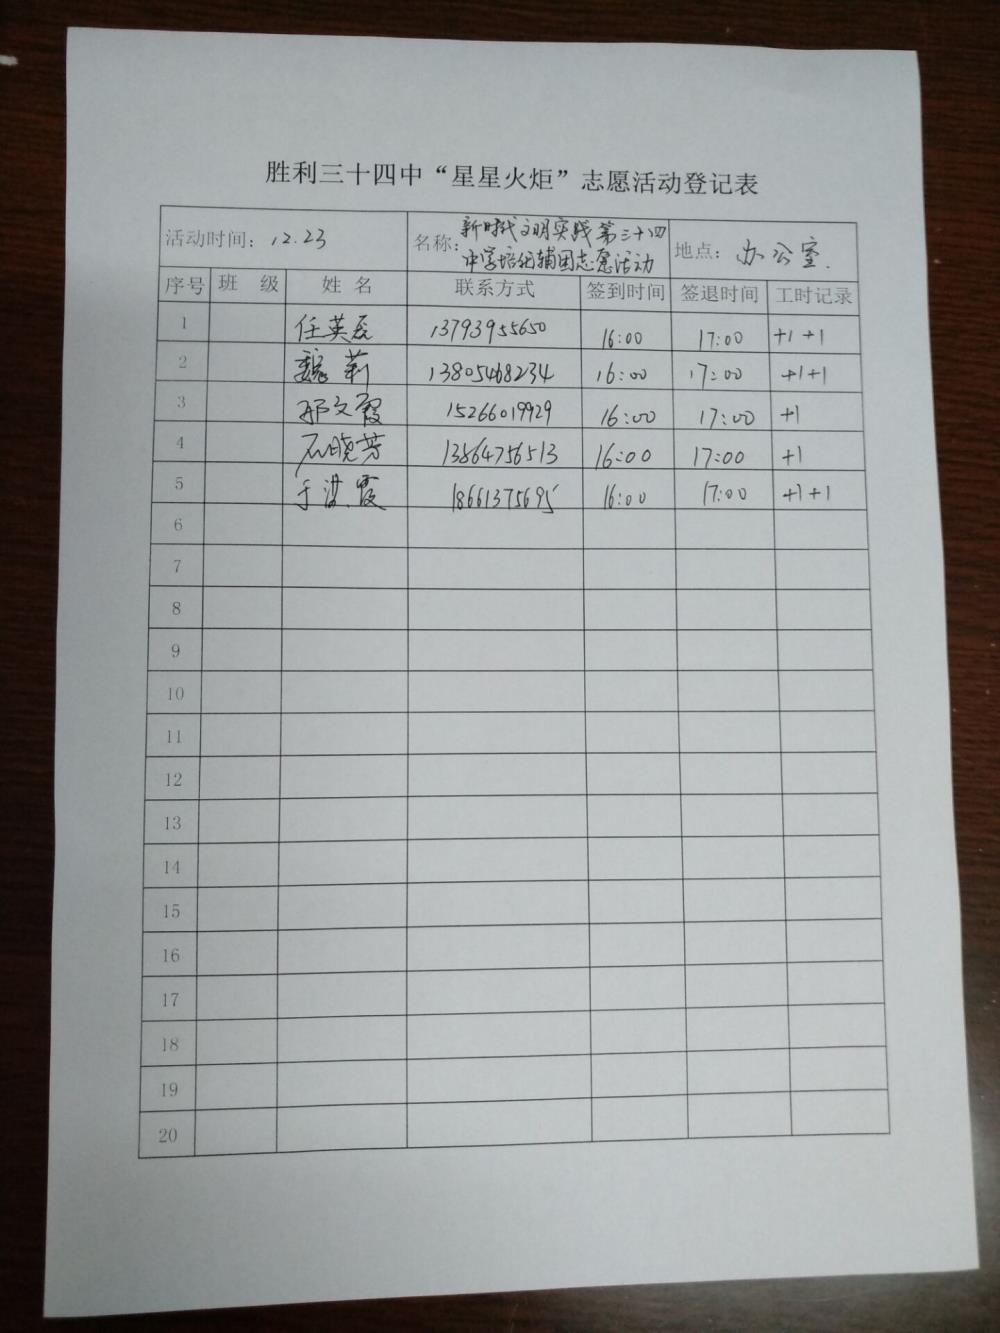 胜利三十四中“星星火炬”志愿活动登记表
活动时间：12.23 名称：新时代文明实践第三十四中学培训辅困志愿活动 地点：办公室.
序号 班 级 姓 名 联系方式 签到时间 签退时间 工时记录
1 任英辰 13793955650 16:00 17:00 +1 +1
2 魏莉 13805468234 16:00 17:00 +1+1
3 邢文霞 15266019929 16:00 17:00 +1
4 石晓芳 13864756513 16:00 17:00 +1
5 于淇霞 18661375695 16:00 17:00 +1+1
6
7
8
9
10
11
12
13
14
15
16
17
18
19
20